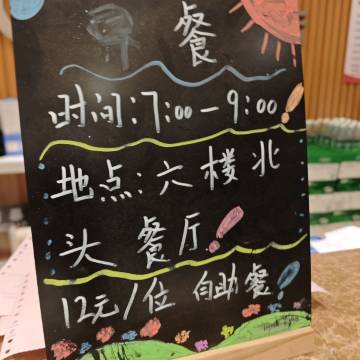 早餐
时间:7:00－9:00!
地点:六楼北
头餐厅!
12元/位 自助餐!